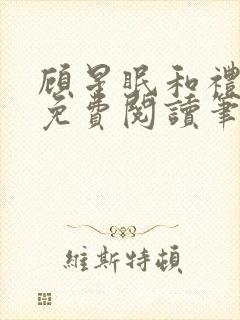 顾星眠和禮
免費閱讀筆
維斯特頓